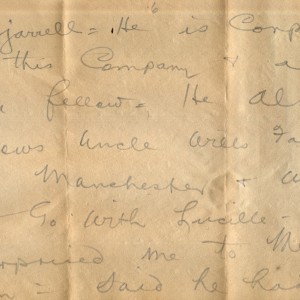 6
jarrell = He is Corp
this Company & a
fellow = He al
ews Uncle Wills Fa
Manchester &
Go with Lucille -
rprised me to M
= Said he ha